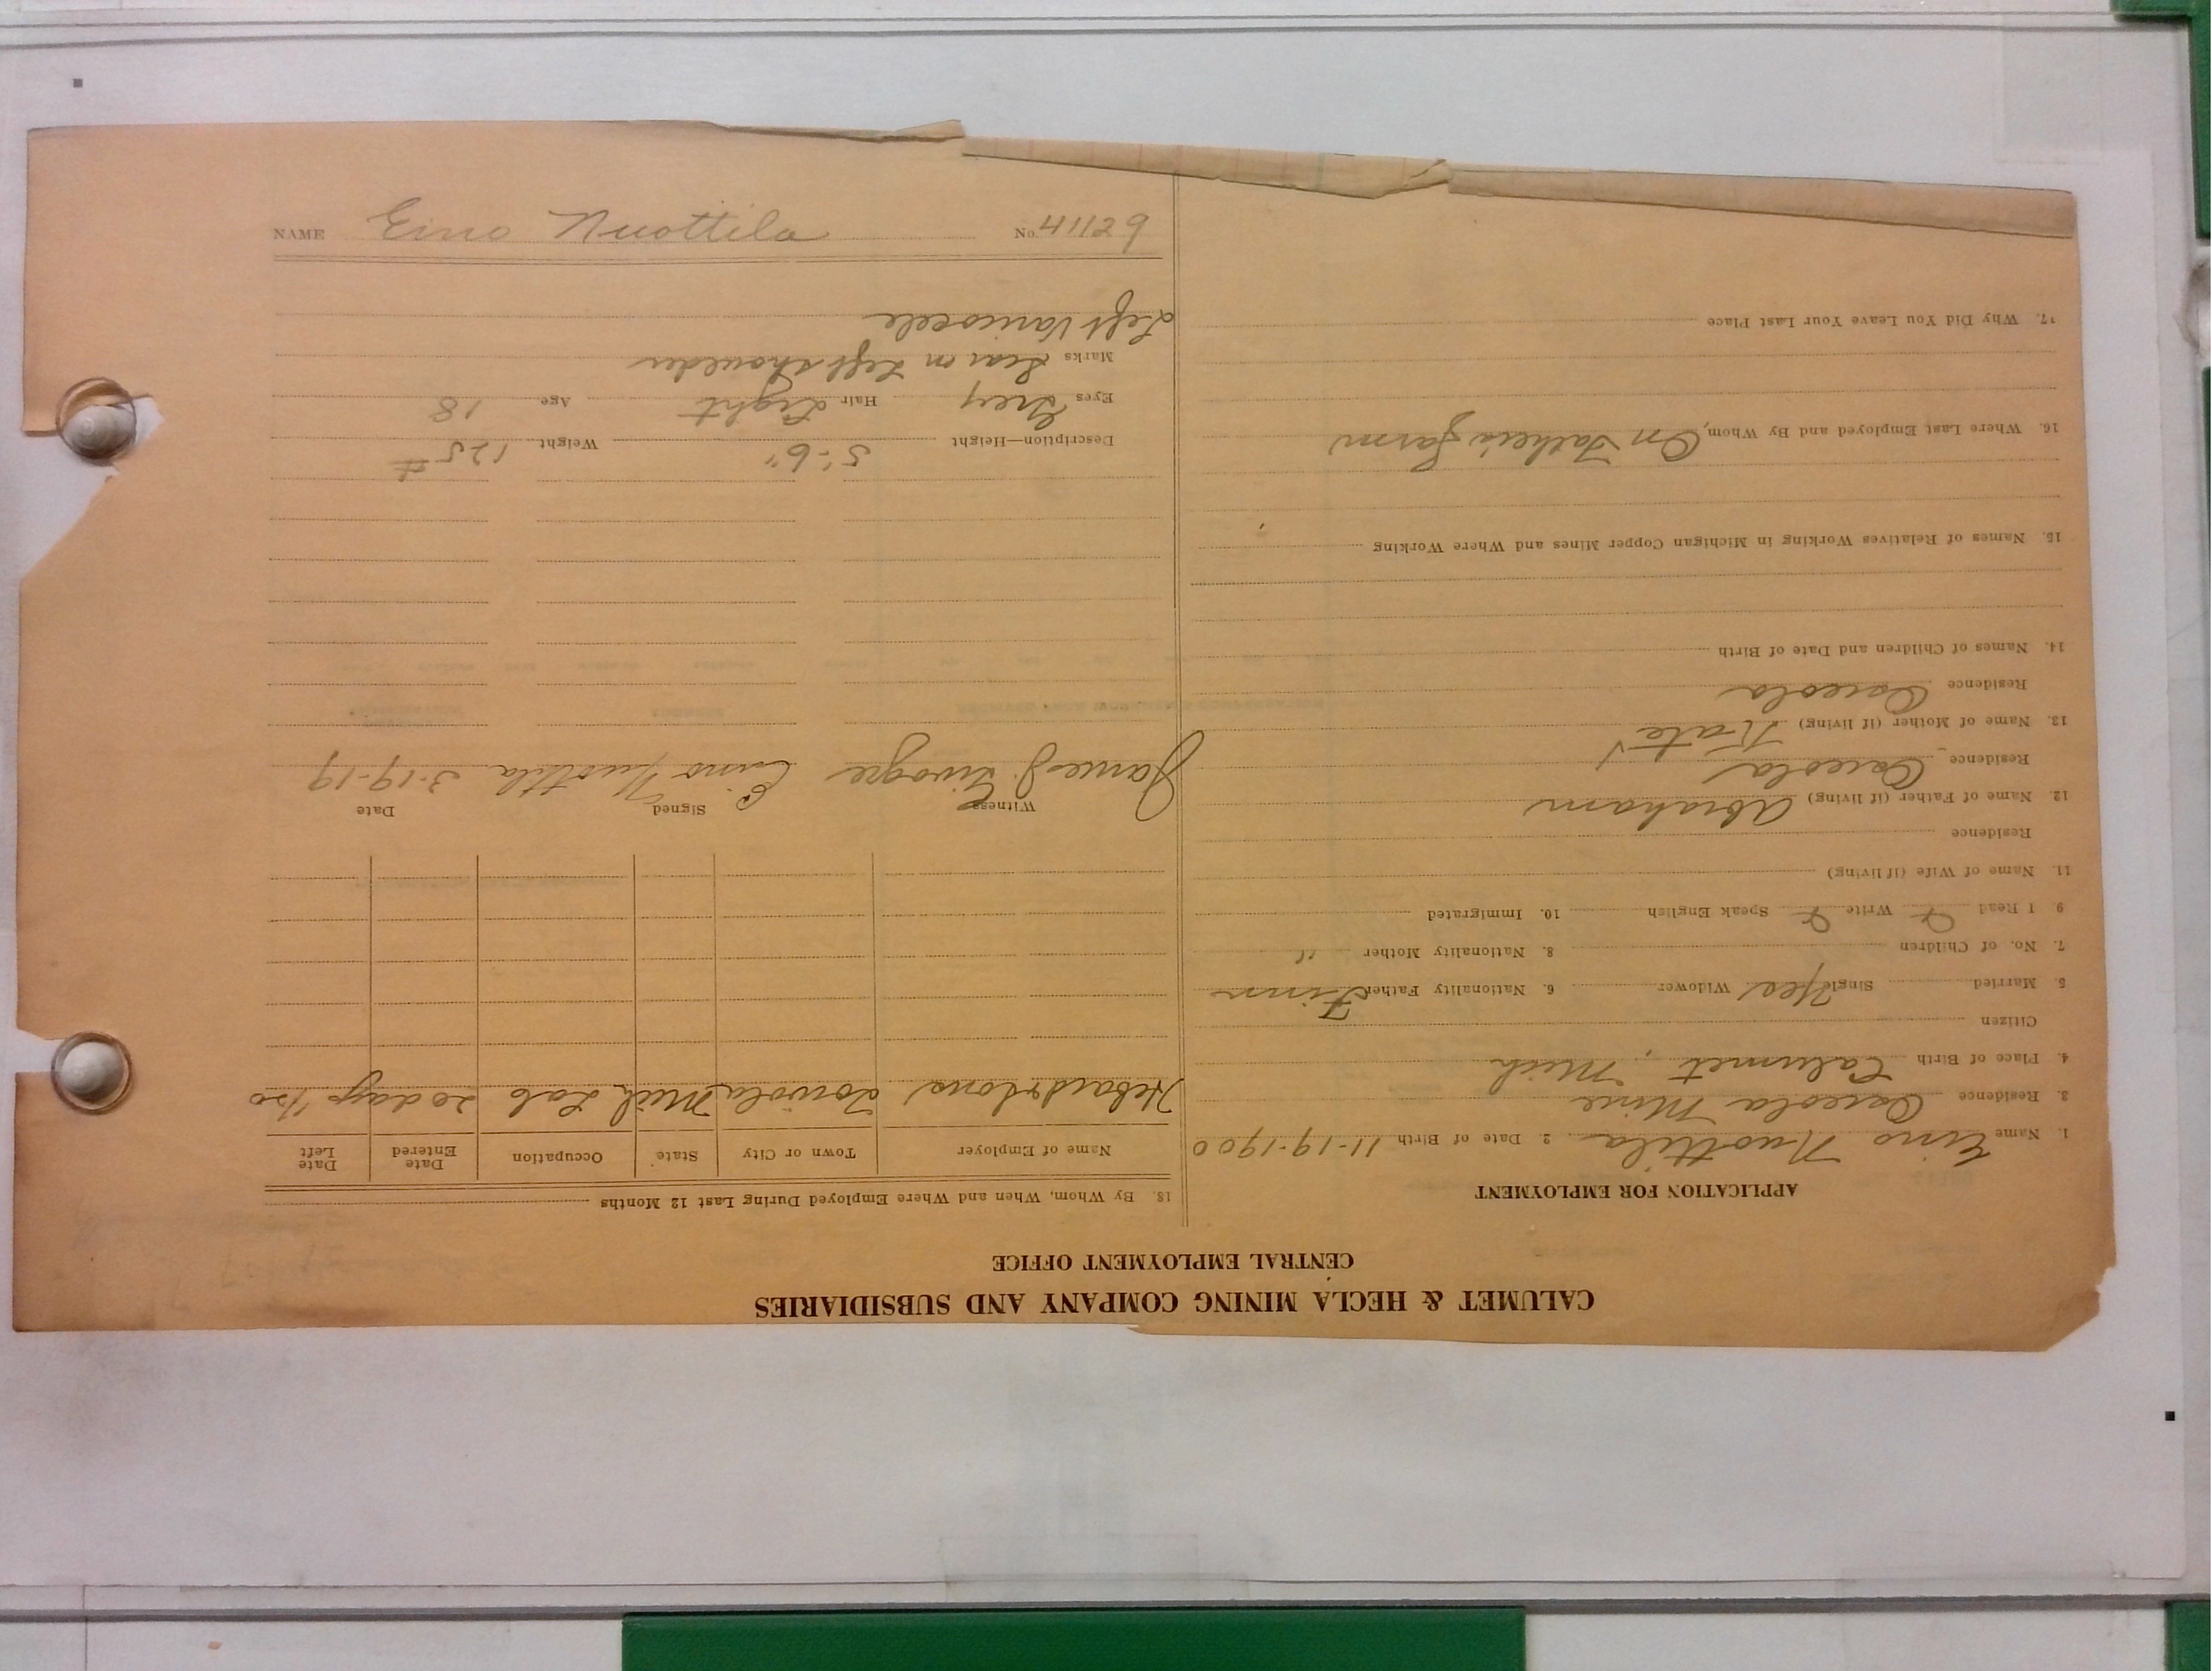 CALUMET & HECLA MINING COMPANY AND SUBSIDIARIES
CENTRAL EMPLOYMENT OFFICE
APPLICATION FOR EMPLOYMENT
1. Name Eino Nuottila 2. Date of Birth 11-19-1900
3. Residence Osceola Mine
4. Place of Birth Calumet, Mich
Citizen
5. Married Single Yes Widower 6. Nationality Father Finn
7. No. of Children 8. Nationality Mother "
9 I Read Write Speak English 10. Immigrated
11. Name of Wife (if living)
Residence
12. Name of Father (if living) Abraham
Residence Osceola
13. Name of Mother (if living) Kate
Residence Osceola
14. Names of Children and Date of Birth
15. Names of Relatives Working in Michigan Copper Mines and Where Working
16. Where Last Employed and By Whom, On Father's farm
17. Why Did You Leave Your Last Place
18. By Whom, When and Where Employed During Last 12 Months
Name of Employer Town or City State Occupation Date Entered Date Left
Toivola Mich Lab 20 days
Witness Signed Date
James J. Eino Nuottila 3-19-19
Description—Height 5'-6" Weight 125#
Eyes Grey Hair Light Age 18
Marks Scar on Left shoulder
Left Varicocele
NAME Eino Nuottila No. 41129